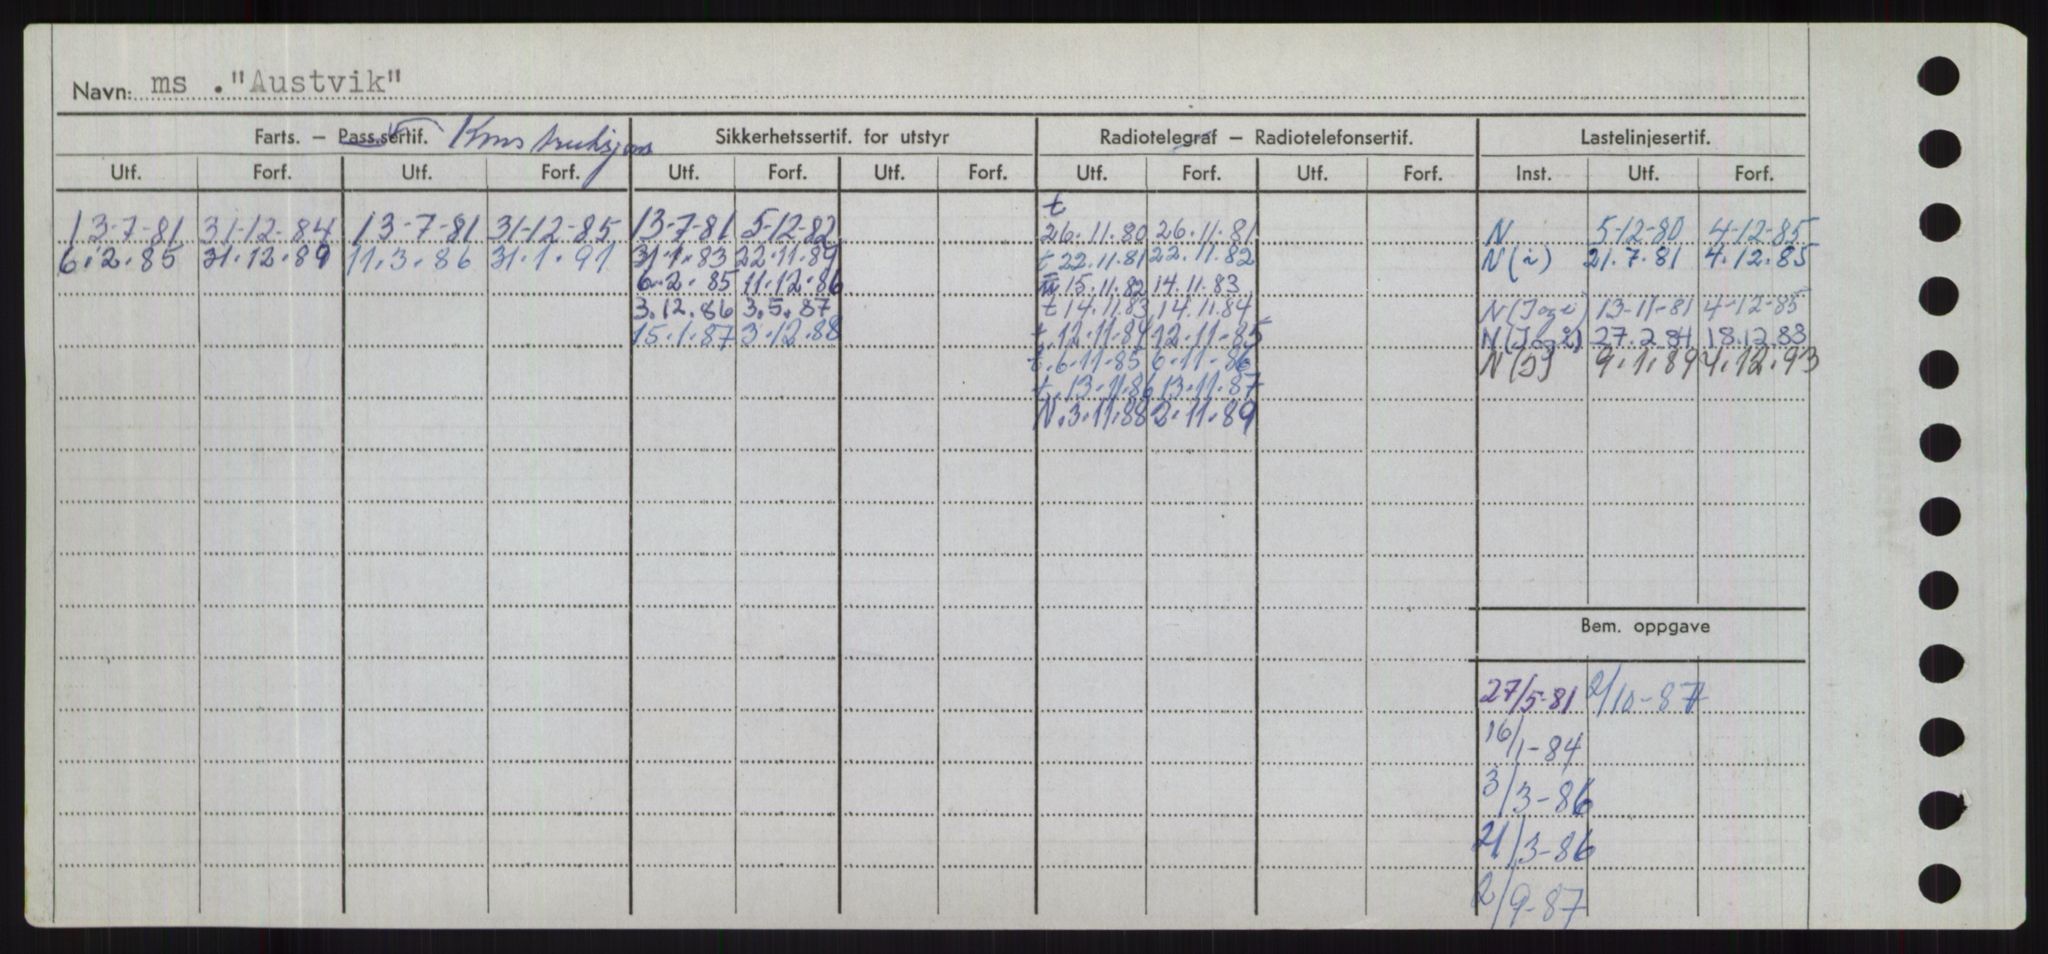 Navn: ms ."Austvik"
Farts. — Pass.sertif. Konstruksjons Sikkerhetssertif. for utstyr Radiotelegraf — Radiotelefonsertif. Lastelinjesertif.
Utf. Forf. Utf. Forf. Utf. Forf. Utf. Forf. Utf. Forf. Utf. Forf. Inst. Utf. Forf.
t
13-7-81 31-12-84 13-7-81 31-12-85 13-7-81 5-12-82 26.11.80 26.11.81 N 5-12-80 4-12-85
6.2.85 31.12.89 11.3.86 31.1.91 31.1.83 22.11.89 t 22.11.81 22.11.82 N(i) 21.7.81 4.12.85
6.2.85 11.12.86 15.11.82 14.11.83
3.12.86 3.5.87 t 14.11.83 14.11.84 N(Iogi) 13-11-81 4-12-85
15.1.87 3.12.88 t.12.11.84 12.11.85 N(Iog2) 27.2.84 18.12.83
t.6.11.85 6.11.86 N(I) 9.1.89 4.12.93
t.13.11.86 13.11.87
N.3.11.88 2.11.89
Bem. oppgave
27/5-81 2/10-87
16/1-84
3/3-86
21/3-86
2/9-87